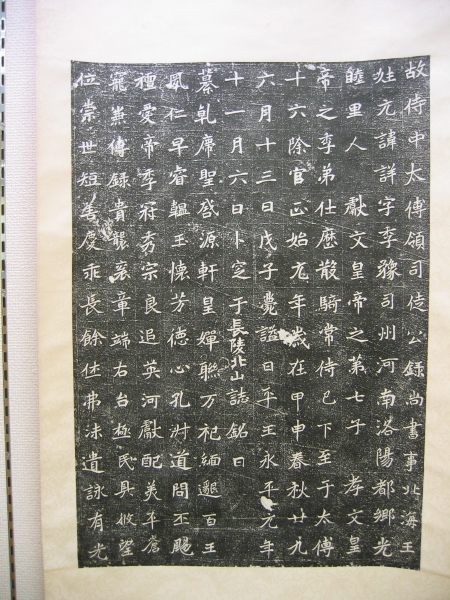 故侍中太傅領司徒公録尚書事北海王
姓元諱詳字季豫司州河南洛陽都鄉光
睦里人 獻文皇帝之第七子 孝文皇
帝之季弟仕歷散騎常侍已下至于太傅
十六除官正始元年歲在甲申春秋廿九
六月十三日戊子薨謚曰平王永平元年
十一月六日卜窆于長陵北山誌銘曰
纂乹席聖啓源軒皇嬋聯万祀緬邈百王
風仁早睿韞玉懷芳德心孔淵道問丕颺
禮愛帝季冠秀宗良追英河獻配美平蒼
寵兼傅録貴襲衮章端右台極民具攸望
位崇世短善慶乖長餘仕弗沬遺詠有光